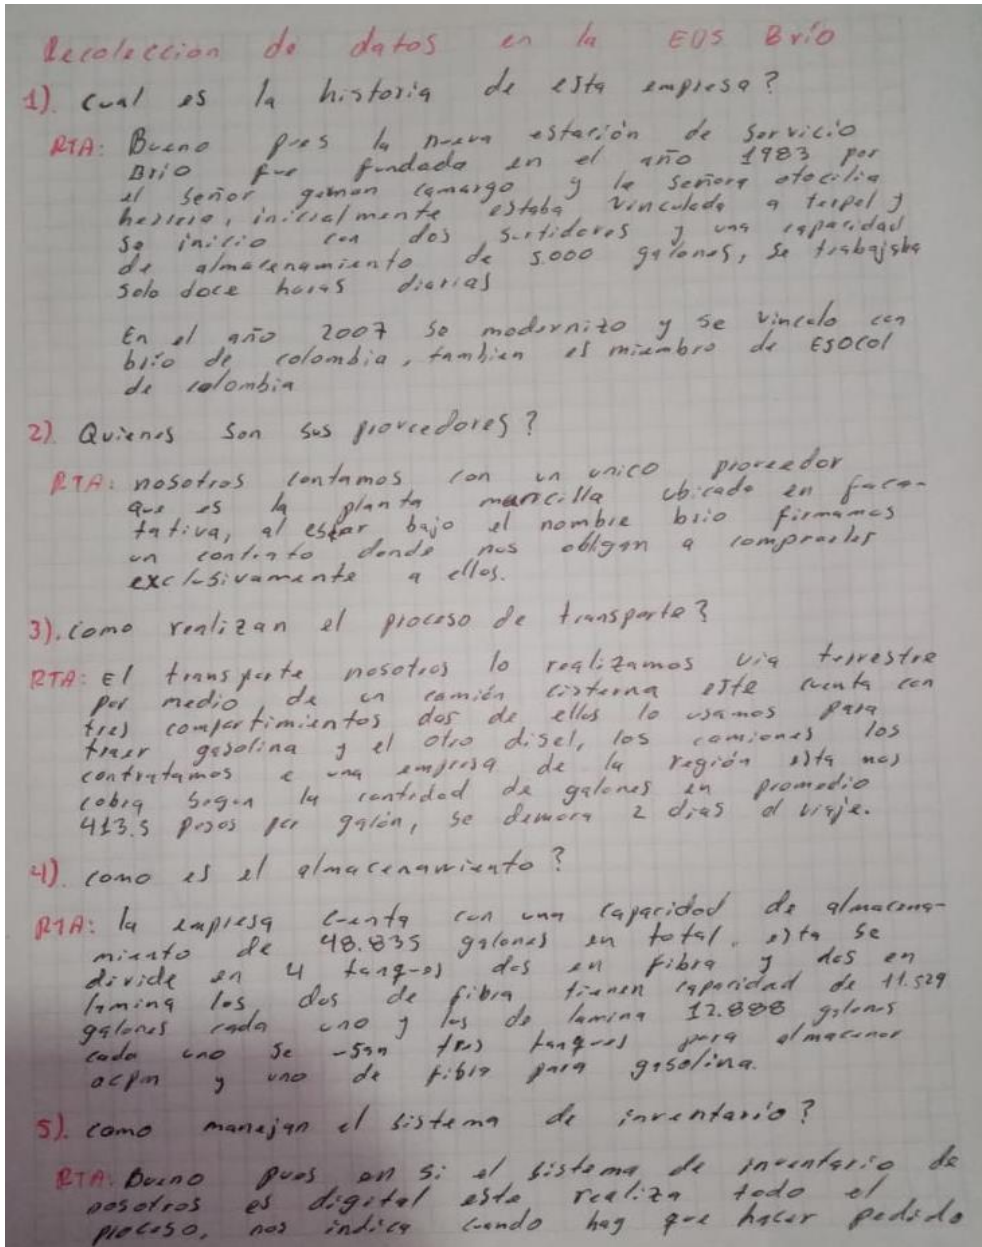 Recoleccion de datos en la EDS Brío
1). Cual es la historia de esta empresa?
RTA: Bueno pues la nueva estación de servicio
Brio fue fundada en el año 1983 por
el señor camargo y la señora otocilia
inicialmente estaba vinculada a terpel y
se inicio con dos surtidores y una capacidad
de almacenamiento de 5.000 galones, se trabajaba
solo doce horas diarias
En el año 2007 se modernizo y se vinculo con
brio de colombia, tambien es miembro de ESOCOL
de colombia
2) Quienes son sus proveedores?
RTA: nosotros contamos con un unico proveedor
que es la planta mancilla ubicada en faca-
tativa, al estar bajo el nombre brio firmamos
un contrato donde nos obligan a comprarles
exclusivamente a ellos.
3). como realizan el proceso de transporte?
RTA: El transporte nosotros lo realizamos via terrestre
por medio de un camión cisterna este cuenta con
tres compartimientos dos de ellos lo usamos para
traer gasolina y el otro disel, los camiones los
contratamos a una empresa de la región esta nos
cobra segun la cantidad de galones en promedio
413.5 pesos por galón, se demora 2 dias el viaje.
4). como es el almacenamiento?
RTA: la empresa cuenta con una capacidad de almacena-
miento de 48.835 galones en total. esta se
divide en 4 tanques dos en fibra y dos en
lamina los dos de fibra tienen capacidad de 11.529
galones cada uno y los de lamina 12.888 galones
cada uno se usan tres tanques para almacenar
acpm y uno de fibra para gasolina.
5). como manejan el sistema de inventario?
RTA: Bueno pues en si el sistema de inventario de
nosotros es digital este realiza todo el
proceso, nos indica cuando hay que hacer pedido